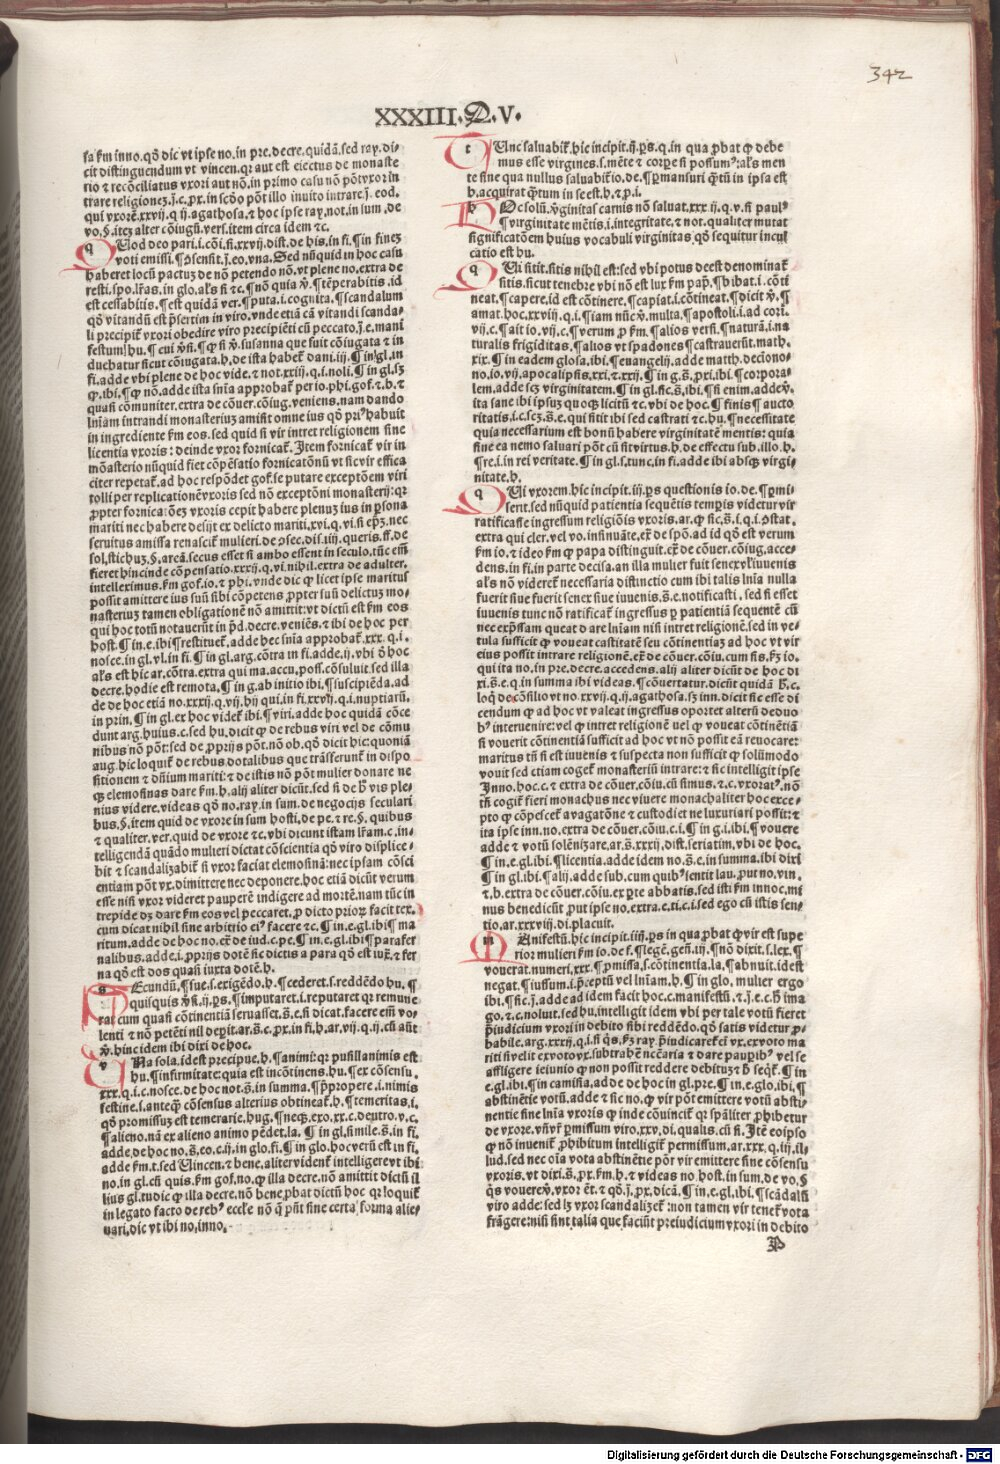 342
XXXIII. Q. V.
sa ẜm inno. qd̄ dic vt ipse no. in pre. decre. quidā. sed ray. di-
cit distinguendum vt vincen. qr aut est eiectus de monaste
rio ⁊ recōciliatus vxori aut nō. in primo casu nō pōt vxor in
trare religionez. j. c. p̄x. in scd̄o pōt illo inuito intrare. j. eod.
qui vxorē. xxvij. q. ij. agathosa. ⁊ hoc ipse ray. not. in sum. de
vo. §. itez alter cōiugū. vers. item circa idem ⁊c.
q Uod deo pari. i. cōi. fi. xxvij. dist. de his. in fi. ¶ in finez
voti emissi. ¶ p̄sensit. j. eo. vna. Sed nūquid in hoc casu
haberet locū pactuz de nō petendo nō. vt plene no. extra de
resti. spo. lr̄as. in glo. al's si ⁊c. ¶ nō quia v̄. ¶ tēperabitis. id
est cessabitis. ¶ est quidā ver. ¶ puta. i. cognita. ¶ scandalum
qd̄ vitandū est p̄sertim in viro. vnde etiā cā vitandi scanda-
li precipit' vxori obedire viro precipiēti cū peccato. j. e. mani
festum. hu. ¶ cui v̄si. ¶ ꝙ si v̄. susanna que fuit cōiugata ⁊ in
duebatur sicut cōiugata. h. de ista habet' dani. iij. ¶ in gl. in
fi. adde vbi plene de hoc vide. ⁊ not. xxiij. q. i. noli. ¶ in gl. sz
ꝙ. ibi. ¶ ꝙ nō. adde ista sn̄ia approbat' per io. phi. gof. ⁊ b. ⁊
quasi cōmuniter. extra de cōuer. cōiug. veniens. nam dando
ln̄iam intrandi monasteriuz amisit omne ius qd̄ pri' habuit
in ingrediente ẜm eos. sed quid si vir intret religionem sine
licentia vxoris: deinde vxor fornicat'. Item fornicat' vir in
mōasterio nūquid fiet cōpēsatio fornicatōnū vt sic vir effica
citer repetat'. ad hoc respōdet gof. se putare exceptōem viri
tolli per replicationē vxoris sed nō exceptōni monasterij: qr
ꝓpter fornica. oēz vxoris cepit habere plenuz ius in ꝑsona
mariti nec habere desijt ex delicto mariti. xvi. q. vi. si ep̄z. nec
seruitus amissa renascit' mulieri. de ꝯsec. dis. iiij. queris. ff. de
sol. stichuz. §. areā. secus esset si ambo essent in seculo. tūc em̄
fieret hincinde cōpensatio. xxxij. q. vi. nihil. extra de adulter.
intelleximus. ẜm gof. io. ⁊ phi. vnde dic ꝙ licet ipse maritus
possit amittere ius suū sibi cōpetens ꝓpter suū delictuz mo-
nasteriuz tamen obligationē nō amittit: vt dictū est ẜm eos
qui hoc totū notauerūt in p̄d. decre. veniēs. ⁊ ibi de hoc per
host. ¶ in. e. ibi ¶ restituet'. adde hec sn̄ia approbat'. xxx. q. i.
nosce. in gl. vl. in fi. ¶ in gl. arg. cōtra in fi. adde. ij. vbi v̄ hoc
al's est hic ar. cōtra. extra qui ma. accu. poss. cōsuluit. sed illa
decre. hodie est remota. ¶ in g. ab initio ibi. ¶ suscipiēda. ad
de de hoc etiā no. xxxij. q. vij. hij qui. in fi. xxvij. q. i. nuptiarū.
in prin. ¶ in gl. ex hoc videt' ibi. ¶ viri. adde hoc quidā cōce
dunt arg. huius. c. sed hu. dicit ꝙ de rebus viri vel de cōmu
nibus nō pōt: sed de ꝓprijs pōt. nō ob. qd̄ dicit hic: quoniā
aug. hic loquit' de rebus dotalibus que trāsferunt' in dispo
sitionem ⁊ dn̄ium mariti: ⁊ de istis nō pōt mulier donare ne
ꝙ elemosinas dare ẜm. h. alij aliter dicūt. sed si de b̄ vis ple-
nius videre. videas qd̄ no. ray. in sum. de negocijs seculari
bus. §. item quid de vxore in sum. hosti. de pe. ⁊ re. §. quibus
⁊ qualiter. ver. quid de vxore ⁊c. vbi dicunt istam lr̄am. c. in-
telligendā quādo mulieri dictat cōscientia qd̄ viro displice-
bit ⁊ scandalizabit' si vxor faciat elemosinā: nec ipsam cōsci
entiam pōt vx. dimittere nec deponere. hoc etiā dicūt verum
esse nisi vxor videret pauperē indigere ad mortē. nam tūc in
trepide dz dare ẜm eos vel peccaret. ꝓ dicto priorz facit tex.
cum dicat nihil sine arbitrio ei' facere ⁊c. ¶ in. e. gl. ibi ¶ ma
ritum. adde de hoc no. er̄. de iud. c. pe. ¶ in. e. gl. ibi ¶ parafer
nalibus. adde. i. ꝓprijs dotē sic dictis a para qd̄ est iux̄. ⁊ fer
na qd̄ est dos quasi iuxta dotē. h.
s Ecundū. ¶ sue. s. exigēdo. h. ¶ cederet. s. reddēdo hu. ¶
quisquis v̄si. ij. ps. ¶ imputaret. i. reputaret qr remune
rat cum quasi cōtinentiā seruasset. s̄. e. si dicat. facere em̄ vo-
lenti ⁊ nō petēti nil depit. ar. s̄. c. p̄x. in fi. h. ar. vij. q. ij. cū aūt
v̄. hinc idem ibi dixi de hoc.
v Na sola. idest precipue. h. ¶ animi: qr pusillanimis est
hu. ¶ infirmitate: quia est incōtinens. hu. ¶ ex cōsensu.
xxx. q. i. c. nosce. de hoc not. s̄. in summa. ¶ p̄propere. i. nimis
festine. s. anteꝙ cōsensus alterius obtineat'. h. ¶ temeritas. i.
qd̄ promissuz est temerarie. hug. ¶ necꝙ. exo. xx. c. deutro. v. c.
¶ alieno. nā ex alieno animo pēdet. la. ¶ in gl. simile. s̄. in fi.
adde. de hoc no. s̄. eo. c. ij. in glo. fi. ¶ in glo. hoc verū est in fi.
adde ẜm. t. sed Vincen. ⁊ bene. aliter vident' intelligere vt ibi
no. in gl. cū quis. ẜm gof. no. ꝙ illa decre. nō amittit dictū il
lius gl. tu dic ꝙ illa decre. nō bene. ꝓbat dictū hoc qr loquit'
in legato facto de reb' eccl'e nō q̄ p̄nt sine certa forma alie-
nari. dic vt ibi no. inno.
t Unc saluabit'. hic incipit. ij. ps. q. in qua ꝓbat ꝙ debe
mus esse virgines. s. mēte ⁊ corpe si possum': al's men
te sine qua nullus saluabit' io. de. ¶ ꝑmansuri q̄tū in ipsa est
h. acquirat q̄tum in se est. h. ⁊ p. i.
h Oc solū. v̄ginitas carnis nō saluat. xxx. ij. q. v. si paul'
¶ virginitate mētis. i. integritate. ⁊ not. qualiter mutat
significatōem huius vocabuli virginitas qd̄ sequitur incul
catio est hu.
q Ui sitit. sitis nihil est: sed vbi potus deest denominat'
sitis. sicut tenebre vbi nō est lux ẜm pap̄. ¶ bibat. i. cōti
neat. ¶ capere. id est cōtinere. ¶ capiat. i. cōtineat. ¶ dicit v̄. ¶
amat. hoc. xxvij. q. i. ¶ iam nūc v̄. multa. ¶ apostoli. i. ad cori.
vij. c. ¶ ait io. vij. c. ¶ verum ꝓ ẜm. ¶ alios versi. ¶ naturā. i. na
turalis frigiditas. ¶ alios vt spadones ¶ castrauerūt. math.
xix. ¶ in eadem glosa. ibi. ¶ euangelij. adde matth. deci mo no-
no. io. vij. apocalipsis. xxi. ⁊. xxij. ¶ in g. s̄. p̄xi. ibi. ¶ corpora-
lem. adde scz virginitatem. ¶ in gl. sic. s̄. ibi. ¶ si enim. adde v̄.
ita sane ibi ipsuz quoꝙ licitū ⁊c. vbi de hoc. ¶ finis ¶ aucto
ritatis. i. c. scz. s̄. e. qui sitit ibi sed castrati ⁊c. hu. ¶ necessitate
quia necessarium est bonū habere virginitatē mentis: quia
sine ea nemo saluari pōt cū sit virtus. h. de effectu sub. illo. h.
¶ re. i. in rei veritate. ¶ in gl. s. tunc. in fi. adde ibi absꝙ virgi-
nitate. h.
q Ui vxorem. hic incipit. iij. ps questionis io. de. ¶ ꝑmi-
serit. sed nūquid patientia sequētis temp̄is videtur vir
ratificasse ingressum religiōis vxoris. ar. ꝙ sic. s̄. i. q. i. ꝯstat.
extra qui cler. vel vo. insinuāte. er̄. de spō. ad id qd̄ est verum
ẜm io. ⁊ ideo ẜm ꝙ papa distinguit. er̄. de cōuer. cōiug. acce-
dens. in fi. in parte decisa. an illa mulier fuit senex vl' iuuenis
al's nō videret' necessaria distinctio cum ibi talis ln̄ia nulla
fuerit siue fuerit senex siue iuuenis. s̄. e. notificasti. sed si esset
iuuenis tunc nō ratificat' ingressus ꝑ patientiā sequentē cū
nec exp̄ssam queat dare ln̄iam nisi intret religionē. sed in ve-
tula sufficit ꝙ voueat castitatē seu cōtinentiaz ad hoc vt vir
eius possit intrare religionē. er̄. de cōuer. cōiu. cum sis. ẜz io.
qui ita no. in pre. decre. accedens. alij aliter dicūt de hoc di
xi. s̄. e. q. in summa ibi videas. ¶ cōuertatur. dicūt quidā b̄. c.
loq̄ de cōsilio vt no. xxvij. q. ij. agathosa. sz inn. dicit sic esse di
cendum ꝙ ad hoc vt valeat ingressus oportet alterū de duo
b' interuenire: vel ꝙ intret religionē vel ꝙ voueat cōtinētiā
si vouerit cōtinentiā sufficit ad hoc vt nō possit eā reuocare:
maritus tn̄ si est iuuenis ⁊ suspecta non sufficit ꝙ solūmodo
vouit sed etiam coget' monasteriū intrare: ⁊ sic intelligit ipse
Inno. hoc. c. ⁊ extra de cōuer. cōiu. cū simus. ⁊ c. vxorat'. nō
tn̄ cogit' fieri monachus nec viuere monachaliter hoc exce-
pto ꝙ cōpescet' a vagatōne ⁊ custodiet' ne luxuriari possit: ⁊
ita ipse inn. no. extra de cōuer. cōiu. c. i. ¶ in g. i. ibi. ¶ vouere
adde ⁊ votū solēnizare. ar. s̄. xxxij. dist. seriatim. vbi de hoc.
¶ in. e. gl. ibi. ¶ licentia. adde idem no. s̄. e. in summa. ibi dixi
¶ in gl. ibi. ¶ alij. adde sub. cum quib' sentit lau. put no. vin.
⁊ b. extra de cōuer. cōiu. ex ꝑte abbatis. sed isti ẜm innoc. mi
nus benedicūt. ꝓut ipse no. extra. e. ti. c. i. sed ego cū istis sen-
tio. ar. xxxviij. di. placuit.
m Anifestū. hic incipit. iiij. ps in qua ꝓbat ꝙ vir est supe
rior mulieri ẜm io. de s. ¶ legē. geñ. iij. ¶ nō dixit. s. lex. ¶
vouerat. numeri. xxx. ¶ ꝑmissa. s. cōtinentia. la. ¶ abnuit. idest
negat. ¶ iussum. i. p̄ceptū vel ln̄iam. h. ¶ in glo. mulier ergo
ibi. ¶ sic. j. adde ad idem facit hoc. c. manifestū. ⁊ j. e. c. b̄ ima
go. ⁊. c. noluit. sed hu. intelligit idem vbi per tale votū fieret
p̄iudicium vxori in debito sibi reddēdo. qd̄ satis videtur ꝓ-
babile. arg. xxxij. q. i. si q̄s. ẜz ray. p̄iudicaret' ei vx. ex voto ma
riti si velit ex voto vx. subtrahē nc̄ēaria ⁊ dare paupib' vel se
affligere ieiunio ꝙ non possit reddere debituz ⁊ b̄ seq̄t'. ¶ in
e. gl. ibi. ¶ in camisia. adde de hoc in gl. pre. ¶ in. e. glo. ibi. ¶
abstinētie votū. adde ⁊ sic no. ꝙ vir pōt emittere votū absti-
nentie sine ln̄ia vxoris ꝙ inde cōuincit' qr sp̄aliter ꝓhibetur
de vxore. vn̄ vr̄ ꝑmissum viro. xxv. di. qualis. cū si. Itē eo ipso
ꝙ nō inuenit' ꝓhibitum intelligit' permissum. ar. xxx. q. iij. il-
lud. sed nec oīa vota abstinētie pōt vir emittere sine cōsensu
vxoris. vt dixi. s̄. p̄x. ẜm. h. ⁊ videas no. host. in sum. de vo. §
q̄s vouere v̄. vxor ēt. ⁊ qd̄. j. p̄x. dicā. ¶ in. e. gl. ibi. ¶ scādalū
viro adde: sed lz vxor scandalizet': non tamen vir tenet' vota
frāgere: nisi sint talia que faciūt preiudicium vxori in debito
P
Digitalisierung gefördert durch die Deutsche Forschungsgemeinschaft - DFG